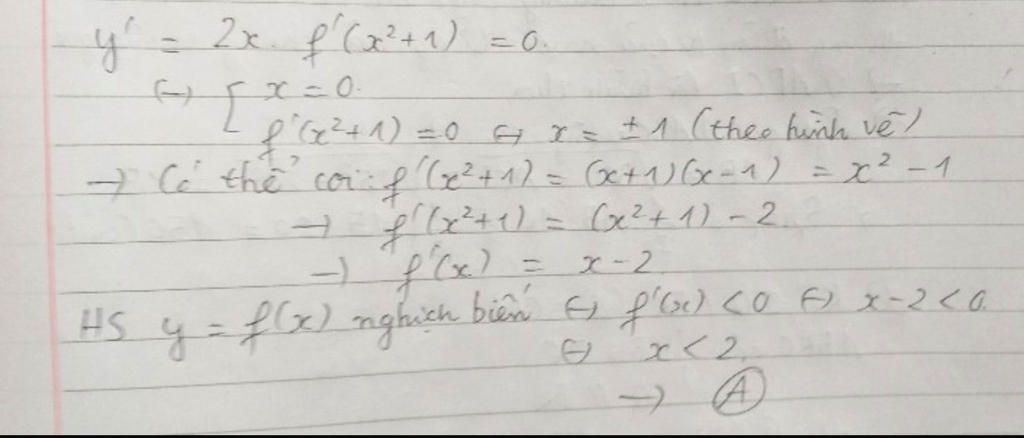 y' = 2x. f'(x²+1) = 0.
⇔ [ x = 0.
f'(x²+1) = 0 ⇔ x = ±1 (theo hình vẽ)
→ Có thể coi: f'(x²+1) = (x+1)(x-1) = x² - 1
→ f'(x²+1) = (x²+1) - 2
→ f'(x) = x - 2
HS y = f(x) nghịch biến ⇔ f'(x) < 0 ⇔ x - 2 < 0.
⇔ x < 2.
→ Ⓐ